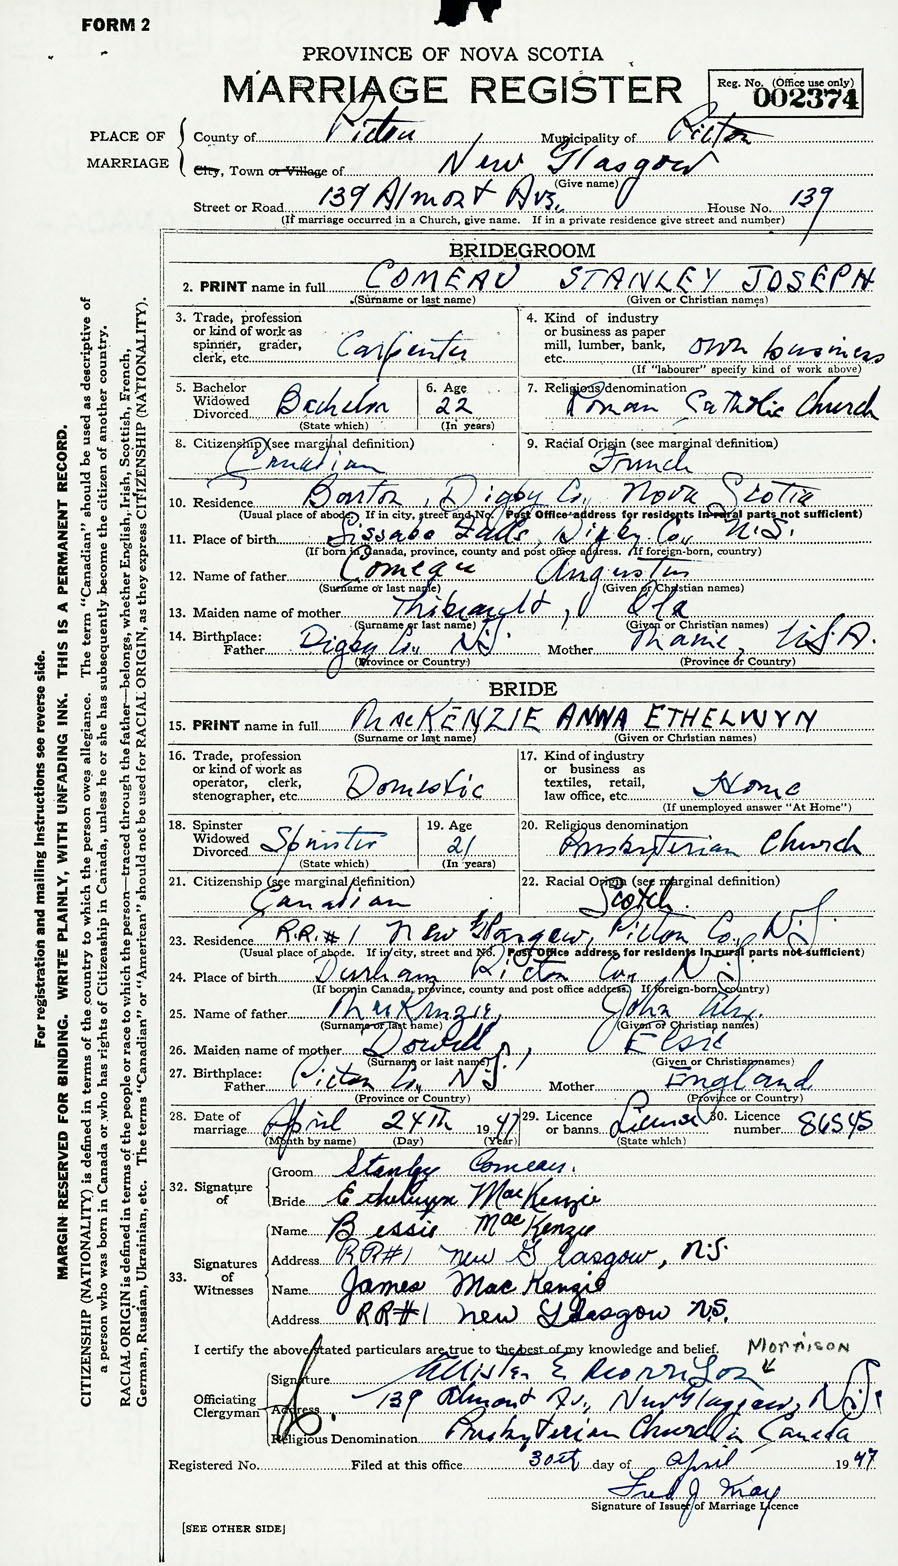 FORM 2
PROVINCE OF NOVA SCOTIA
MARRIAGE REGISTER
Reg. No. (Office use only)
002374
PLACE OF MARRIAGE
County of Pictou Municipality of Pictou
City, Town or Village of New Glasgow
(Give name)
Street or Road 139 Almont Ave., House No. 139
(If marriage occurred in a Church, give name. If in a private residence give street and number)
BRIDEGROOM
2. PRINT name in full COMEAU STANLEY JOSEPH
(Surname or last name) (Given or Christian names)
3. Trade, profession or kind of work as spinner, grader, clerk, etc. Carpenter
4. Kind of industry or business as paper mill, lumber, bank, etc. own business
(If "labourer" specify kind of work above)
5. Bachelor Widowed Divorced Bachelor
(State which)
6. Age 22
(In years)
7. Religious denomination Roman Catholic Church
8. Citizenship (see marginal definition) Canadian
9. Racial Origin (see marginal definition) French
10. Residence Barton, Digby Co., Nova Scotia
(Usual place of abode. If in city, street and No. Post Office address for residents in rural parts not sufficient)
11. Place of birth Sissabo Falls, Digby Co., N.S.
(If born in Canada, province, county and post office address. If foreign-born, country)
12. Name of father Comeau Angustus
(Surname or last name) (Given or Christian names)
13. Maiden name of mother Thibeault, Ola
(Surname or last name) (Given or Christian names)
14. Birthplace: Father Digby Co., N.S. Mother U.S.A.
(Province or Country) (Province or Country)
BRIDE
15. PRINT name in full MacKENZIE ANNA ETHELWYN
(Surname or last name) (Given or Christian names)
16. Trade, profession or kind of work as operator, clerk, stenographer, etc. Domestic
17. Kind of industry or business as textiles, retail, law office, etc. Home
(If unemployed answer "At Home")
18. Spinster Widowed Divorced Spinster
(State which)
19. Age 21
(In years)
20. Religious denomination Presbyterian Church
21. Citizenship (see marginal definition) Canadian
22. Racial Origin (see marginal definition) Scotch.
23. Residence R.R.#1 New Glasgow, Pictou Co., N.S.
(Usual place of abode. If in city, street and No. Post Office address for residents in rural parts not sufficient)
24. Place of birth Durham Pictou Co., N.S.
(If born in Canada, province, county and post office address. If foreign-born, country)
25. Name of father MacKenzie, John Alex.
(Surname or last name) (Given or Christian names)
26. Maiden name of mother Dowell, Elsie
(Surname or last name) (Given or Christian names)
27. Birthplace: Father Pictou Co., N.S. Mother England
(Province or Country) (Province or Country)
28. Date of marriage April 24th 1947
(Month by name) (Day) (Year)
29. Licence or banns. License
(State which)
30. Licence number. 86545
32. Signature of
Groom Stanley Comeau.
Bride Ethelwyn MacKenzie
33. Signatures of Witnesses
Name Bessie MacKenzie
Address RR#1 New Glasgow, N.S.
Name James MacKenzie
Address RR#1 New Glasgow N.S.
I certify the above stated particulars are true to the best of my knowledge and belief. MORRISON
Officiating Clergyman
Signature Allister E Morrison
Address 139 Almont Av., New Glasgow, N.S.
Religious Denomination Presbyterian Church in Canada
Registered No. Filed at this office 30th day of April 1947
Fred J. May
Signature of Issuer of Marriage Licence
[SEE OTHER SIDE]
For registration and mailing instructions see reverse side.
MARGIN RESERVED FOR BINDING. WRITE PLAINLY, WITH UNFADING INK. THIS IS A PERMANENT RECORD.
CITIZENSHIP (NATIONALITY) is defined in terms of the country to which the person owes allegiance. The term "Canadian" should be used as descriptive of
a person who was born in Canada or who has rights of Citizenship in Canada, unless he or she has subsequently become the citizen of another country.
RACIAL ORIGIN is defined in terms of the people or race to which the person—traced through the father—belongs, whether English, Irish, Scottish, French,
German, Russian, Ukrainian, etc. The terms "Canadian" or "American" should not be used for RACIAL ORIGIN, as they express CITIZENSHIP (NATIONALITY).